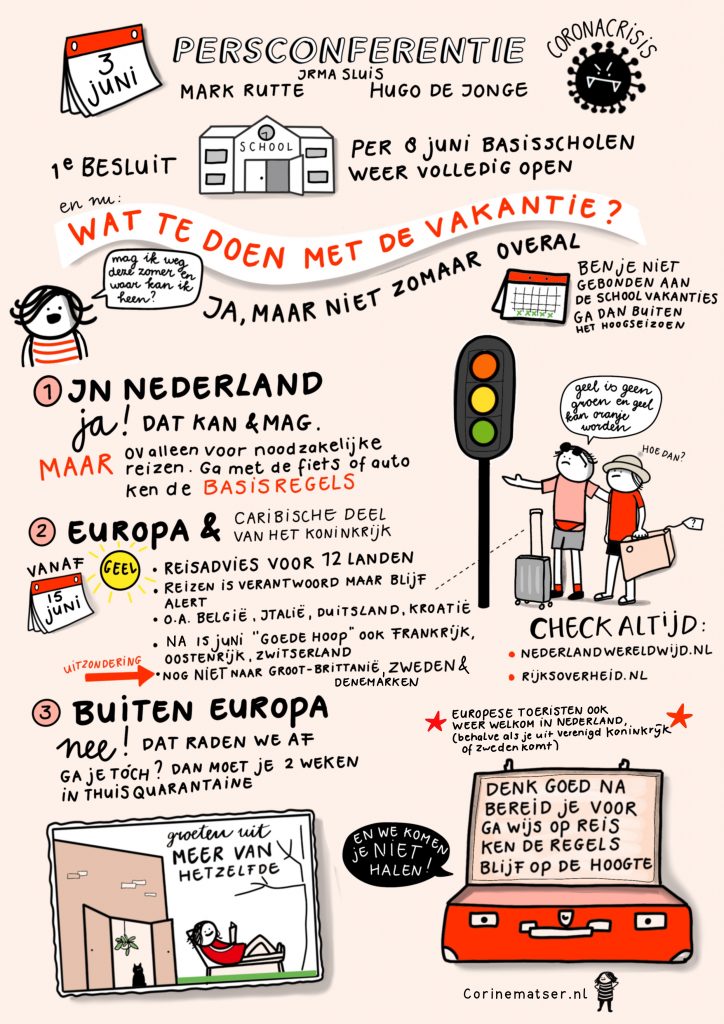 3
JUNI
PERSCONFERENTIE
CORONACRISIS
JRMA SLUIS
MARK RUTTE
HUGO DE JONGE
1e BESLUIT
SCHOOL
PER 8 JUNI BASISSCHOLEN
WEER VOLLEDIG OPEN
en nu:
WAT TE DOEN MET DE VAKANTIE?
mag ik weg
deze zomer en
waar kan ik
heen?
JA, MAAR NIET ZOMAAR OVERAL
BEN JE NIET
GEBONDEN AAN
DE SCHOOLVAKANTIES
GA DAN BUITEN
HET HOOGSEIZOEN
1 JN NEDERLAND
ja! DAT KAN & MAG.
MAAR
OV alleen voor noodzakelijke
reizen. Ga met de fiets of auto
ken de BASISREGELS
geel is geen
groen en geel
kan oranje
worden
HOE DAN?
?
2 EUROPA &
CARIBISCHE DEEL
VAN HET KONINKRIJK
VANAF
15
JUNI
GEEL
• REISADVIES VOOR 12 LANDEN
• REIZEN IS VERANTWOORD MAAR BLIJF
ALERT
• O.A. BELGIË, JTALIË, DUITSLAND, KROATIË
• NA 15 JUNI "GOEDE HOOP" OOK FRANKRIJK,
OOSTENRIJK, ZWITSERLAND
UITZONDERING
• NOG NIET NAAR GROOT-BRITTANIË, ZWEDEN &
DENEMARKEN
CHECK ALTIJD:
• NEDERLANDWERELDWIJD.NL
• RIJKSOVERHEID.NL
3 BUITEN EUROPA
nee! DAT RADEN WE AF
GA JE TÓCH? DAN MOET JE 2 WEKEN
IN THUISQUARANTAINE
EUROPESE TOERISTEN OOK
WEER WELKOM IN NEDERLAND,
(behalve als je uit verenigd koninkrijk
of zweden komt)
groeten uit
MEER VAN
HETZELFDE
EN WE KOMEN
JE NIET
HALEN!
DENK GOED NA
BEREID JE VOOR
GA WIJS OP REIS
KEN DE REGELS
BLIJF OP DE HOOGTE
Corinematser.nl